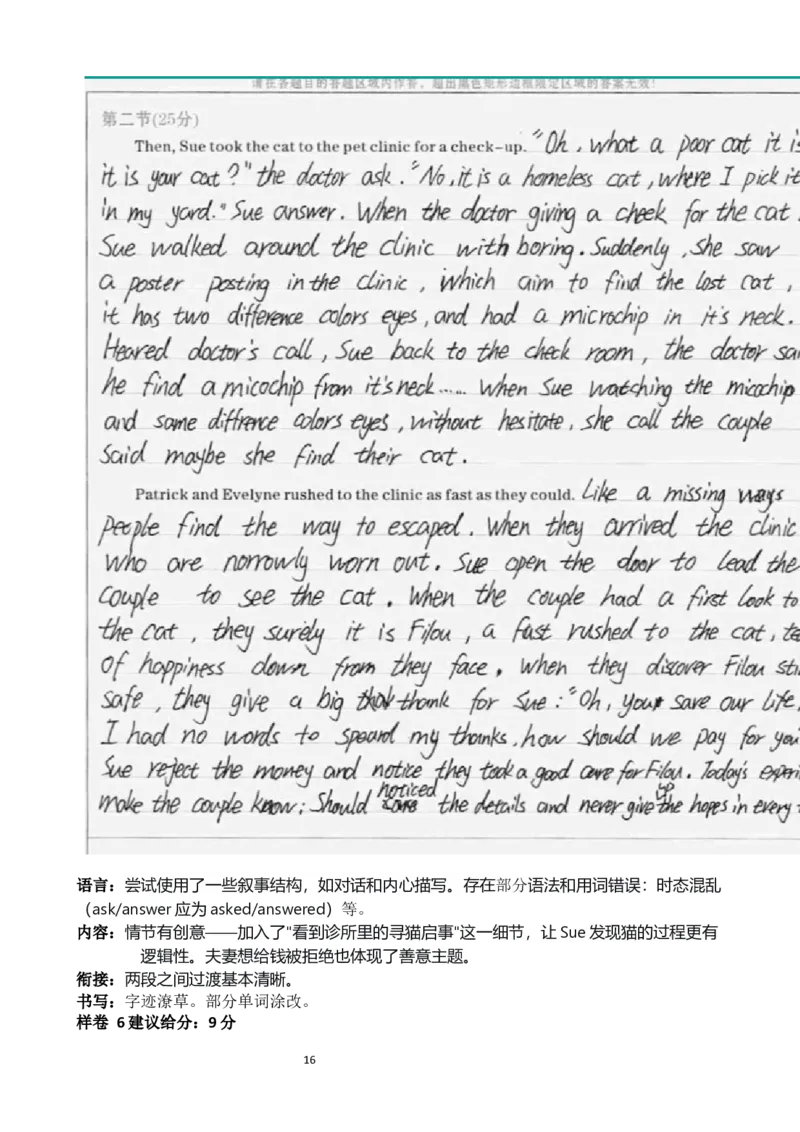 请在各题目的答题区域内作答，超出黑色矩形边框限定区域的答案无效！
第二节(25分)
Then, Sue took the cat to the pet clinic for a check-up. "Oh, what a poor cat it is
it is your cat?" the doctor ask. "No, it is a homeless cat, where I pick it
in my yard." Sue answer. When the doctor giving a cheek for the cat.
Sue walked around the clinic with boring. Suddenly, she saw
a poster posting in the clinic, which aim to find the lost cat,
it has two difference colors eyes, and had a microchip in it's neck.
Heared doctor's call, Sue back to the check room, the doctor sai
he find a micochip from it's neck...... When Sue watching the micochip
and same diffrence colors eyes, without hesitate, she call the couple
said maybe she find their cat.
Patrick and Evelyne rushed to the clinic as fast as they could. Like a missing ways
people find the way to escaped. When they arrived the clinic
who are norrowly worn out. Sue open the door to lead the
couple to see the cat. When the couple had a first look to
the cat, they surely it is Filou, a fast rushed to the cat, te
of happiness down from they face, when they discover Filou sti
safe, they give a big thank for Sue: "Oh, your save our life,
I had no words to my thanks, how should we pay for you
Sue reject the money and notice they took a good care for Filou. Today's experi
make the couple know: Should noticed the details and never give up the hopes in every
语言：尝试使用了一些叙事结构，如对话和内心描写。存在部分语法和用词错误：时态混乱
（ask/answer 应为 asked/answered）等。
内容：情节有创意——加入了"看到诊所里的寻猫启事"这一细节，让 Sue 发现猫的过程更有
逻辑性。夫妻想给钱被拒绝也体现了善意主题。
衔接：两段之间过渡基本清晰。
书写：字迹潦草。部分单词涂改。
样卷 6 建议给分：9 分
16